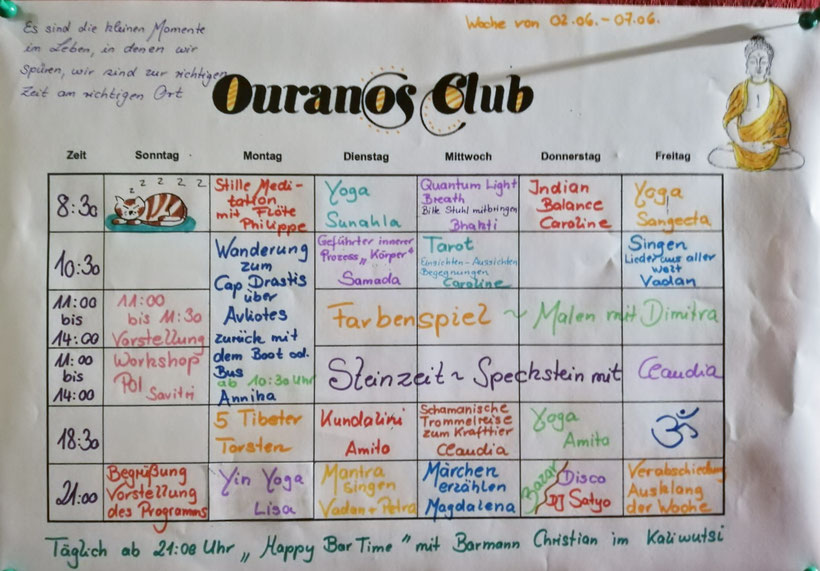 Es sind die kleinen Momente
im Leben, in denen wir
spüren, wir sind zur richtigen
Zeit am richtigen Ort
Woche von 02.06. - 07.06.
Ouranos Club
Zeit Sonntag Montag Dienstag Mittwoch Donnerstag Freitag
8:30
z z z z z
Stille Medi-
tation
mit Flöte
Philippe
Yoga
Sunahla
Quantum Light
Breath
Bitte Stuhl mitbringen
Bhakti
Indian
Balance
Caroline
Yoga
Sangeeta
10:30
Wanderung
zum
Cap Drastis
über
Avliotes
zurück mit
dem Boot od.
Bus
ab 10:30 Uhr
Annika
Geführter innerer
Prozess „Körper“
Samada
Tarot
Einsichten - Aussichten
Begegnungen
Caroline
Singen
Lieder aus aller
Welt
Vadan
11:00
bis
14:00
11:00
bis 11:30
Vorstellung
Farbenspiel ~ Malen mit Dimitra
11:00
bis
14:00
Workshop
Pol
Savitri
Steinzeit ~ Speckstein mit Claudia
18:30
5 Tibeter
Torsten
Kundalini
Amito
Schamanische
Trommelreise
zum Krafttier
Claudia
Yoga
Amito
ॐ
21:00
Begrüßung
Vorstellung
des Programms
Yin Yoga
Lisa
Mantra
singen
Vadan + Petra
Märchen
erzählen
Magdalena
Bazar
Disco
DJ Satyo
Verabschiedung
Ausklang
der Woche
Täglich ab 21:00 Uhr „Happy Bar Time“ mit Barmann Christian im Kaliwutsi